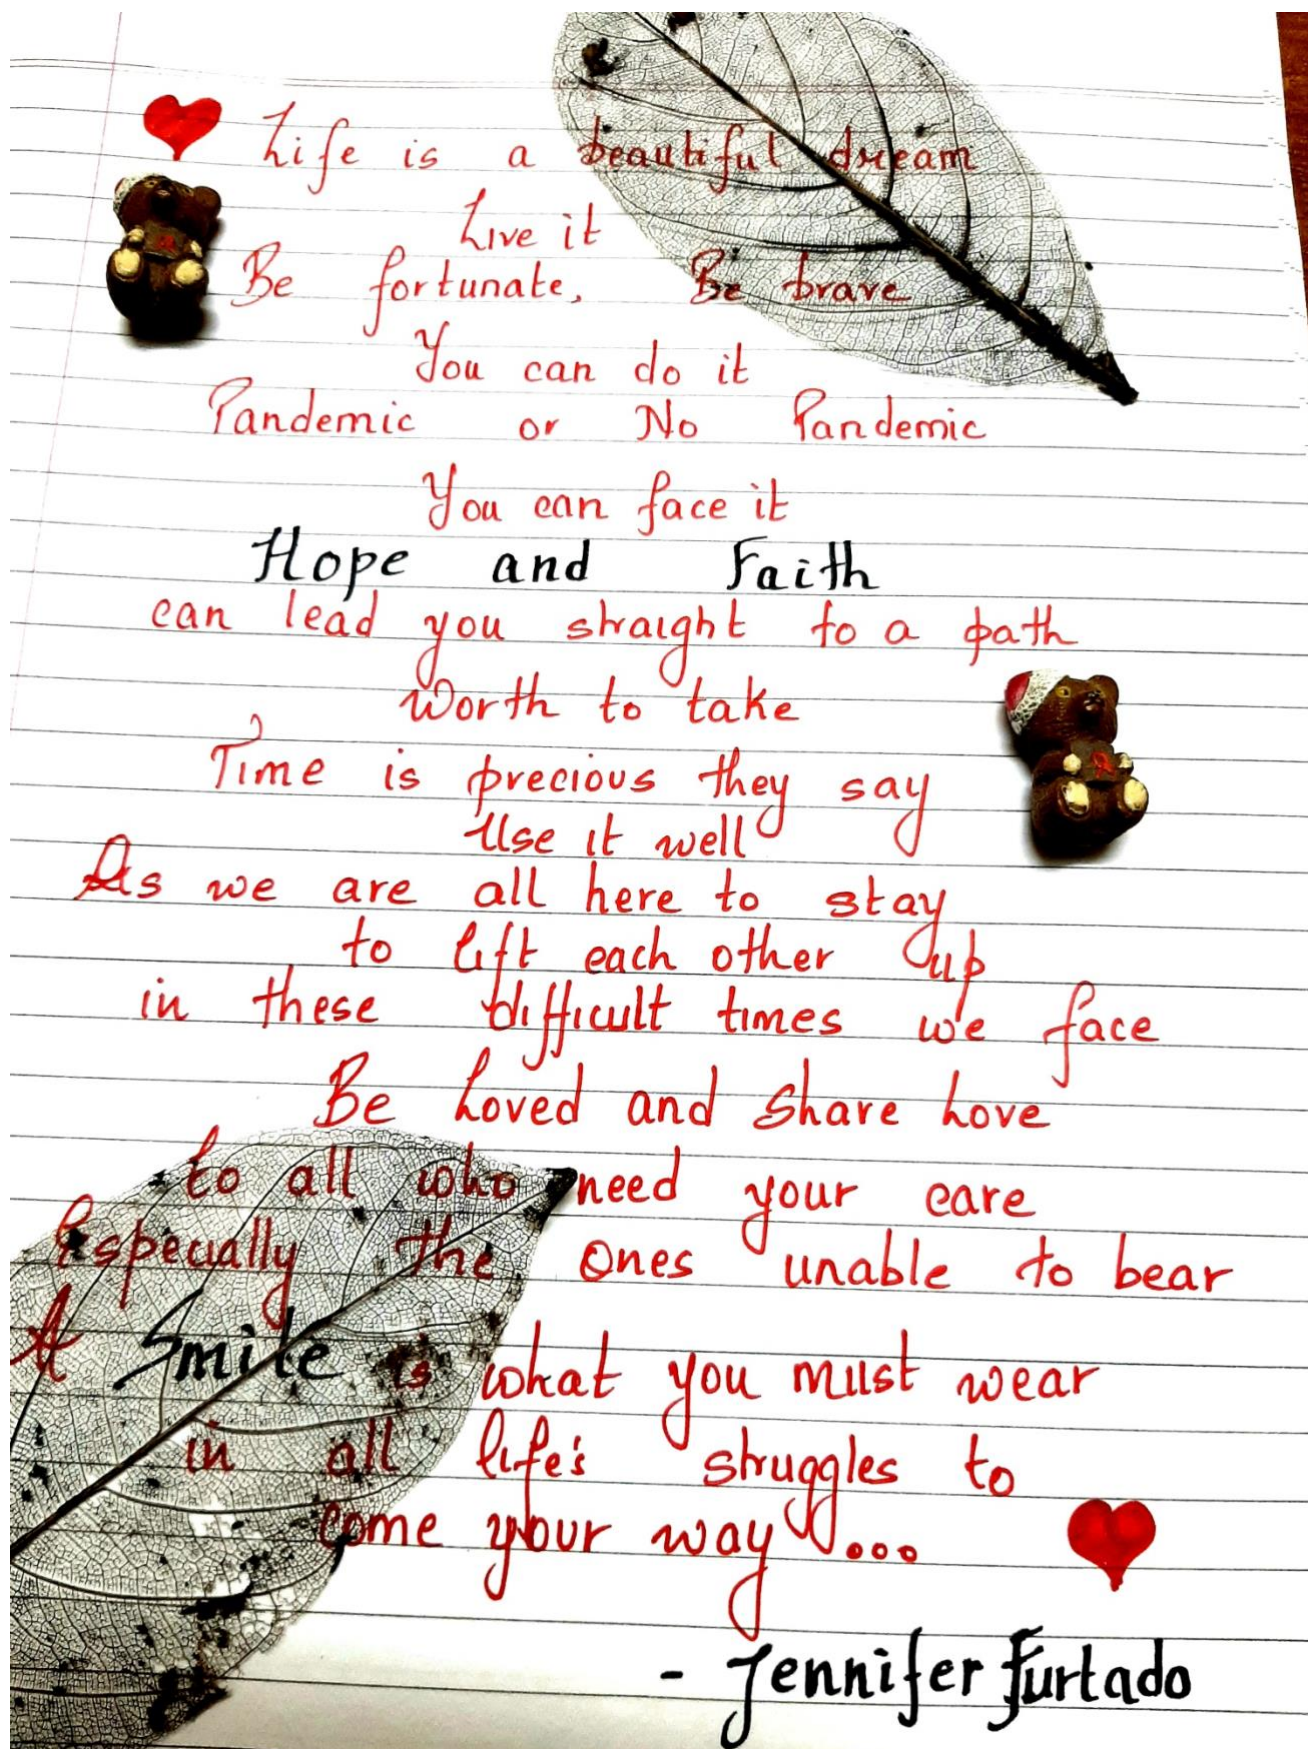 Life is a beautiful dream
Live it
Be fortunate, Be brave
You can do it
Pandemic or No Pandemic
You can face it
Hope and Faith
can lead you straight to a path
worth to take
Time is precious they say
Use it well
As we are all here to stay
to lift each other up
in these difficult times we face
Be Loved and Share Love
to all who need your care
Especially the ones unable to bear
A Smile is what you must wear
in all life's struggles to
come your way ...
- Jennifer Furtado